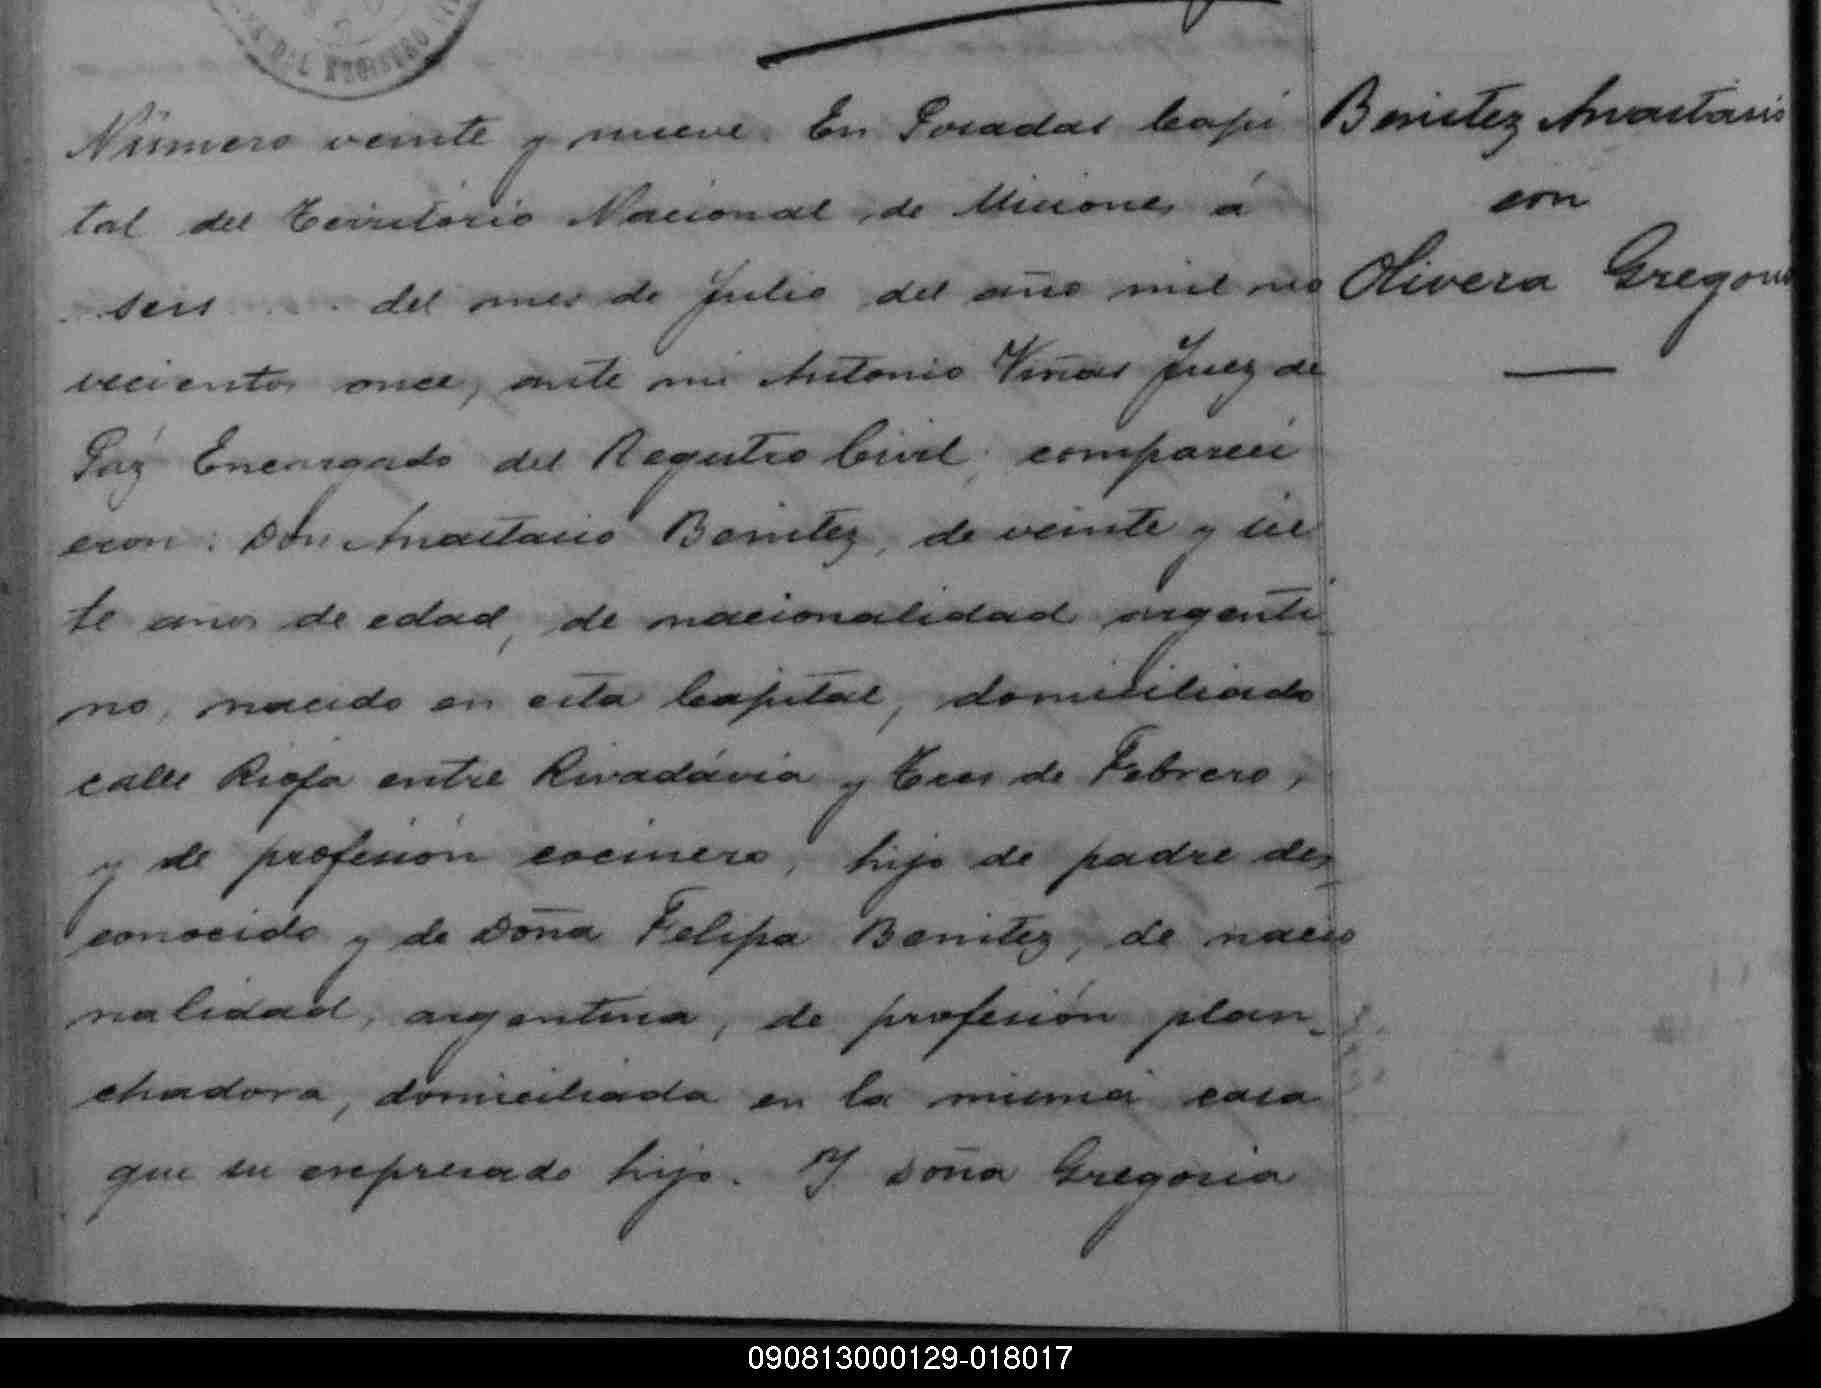 DEL REGISTRO
Número veinte y nueve. En Posadas Capi
tal del Territorio Nacional de Misiones á
seis del mes de Julio del año mil no
vecientos once, ante mi Antonio Viñas Juez de
Páz Encargado del Registro Civil, compareci
eron: Don Anastacio Benitez, de veinte y sie
te años de edad, de nacionalidad argenti
no, nacido en esta Capital, domiciliado
calle Rioja entre Rivadávia y Tres de Febrero,
y de profesión cocinero, hijo de padre des
conocido y de Doña Felipa Benitez, de nacio
nalidad, argentina, de profesión plan-
chadora, domiciliada en la misma casa
que su expresado hijo. Y Doña Gregoria
Benitez Anastasio
con
Olivera Gregoria
090813000129-018017